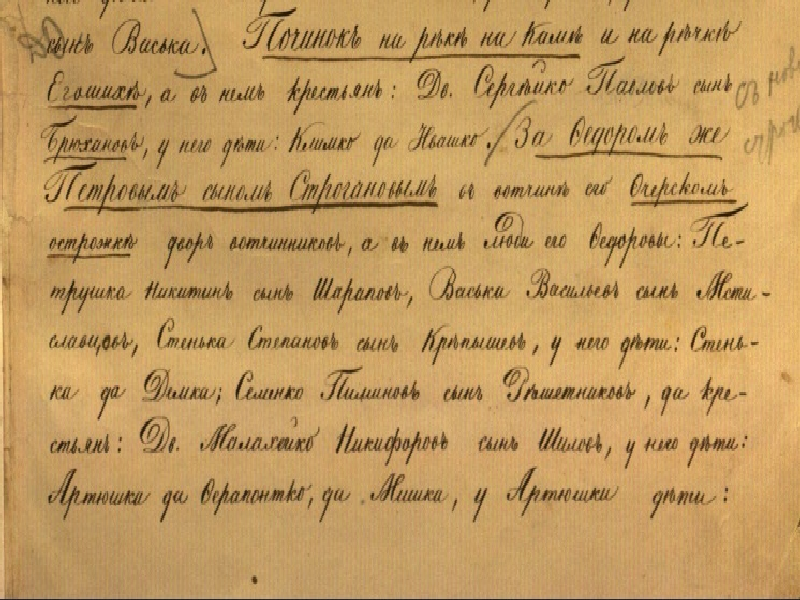 сынъ Васька. Починокъ на рѣкѣ на Камѣ и на рѣчкѣ
Егошихѣ, а въ немъ крестьян: Дв. Сергѣйко Павловъ сынъ
Брюхановъ, у него дѣти: Климко да Ивашко. За Ѳедоромъ же
Петровымъ сыномъ Строгановымъ въ вотчинѣ его Очерскомъ
острожкѣ дворъ вотчинниковъ, а въ немъ люди его Ѳедоровы: Пе-
трушка Никитинъ сынъ Шараповъ, Васька Васильевъ сынъ Мсти-
славцовъ, Стенька Степановъ сынъ Крѣпышевъ, у него дѣти: Стень-
ка да Демка; Семенко Пиминовъ сынъ Рѣшетниковъ, да кре-
стьянъ: Дв. Малахейко Никифоровъ сынъ Шиловъ, у него дѣти:
Артюшка да Ѳерапонтко, да Мишка, у Артюшки дѣти: